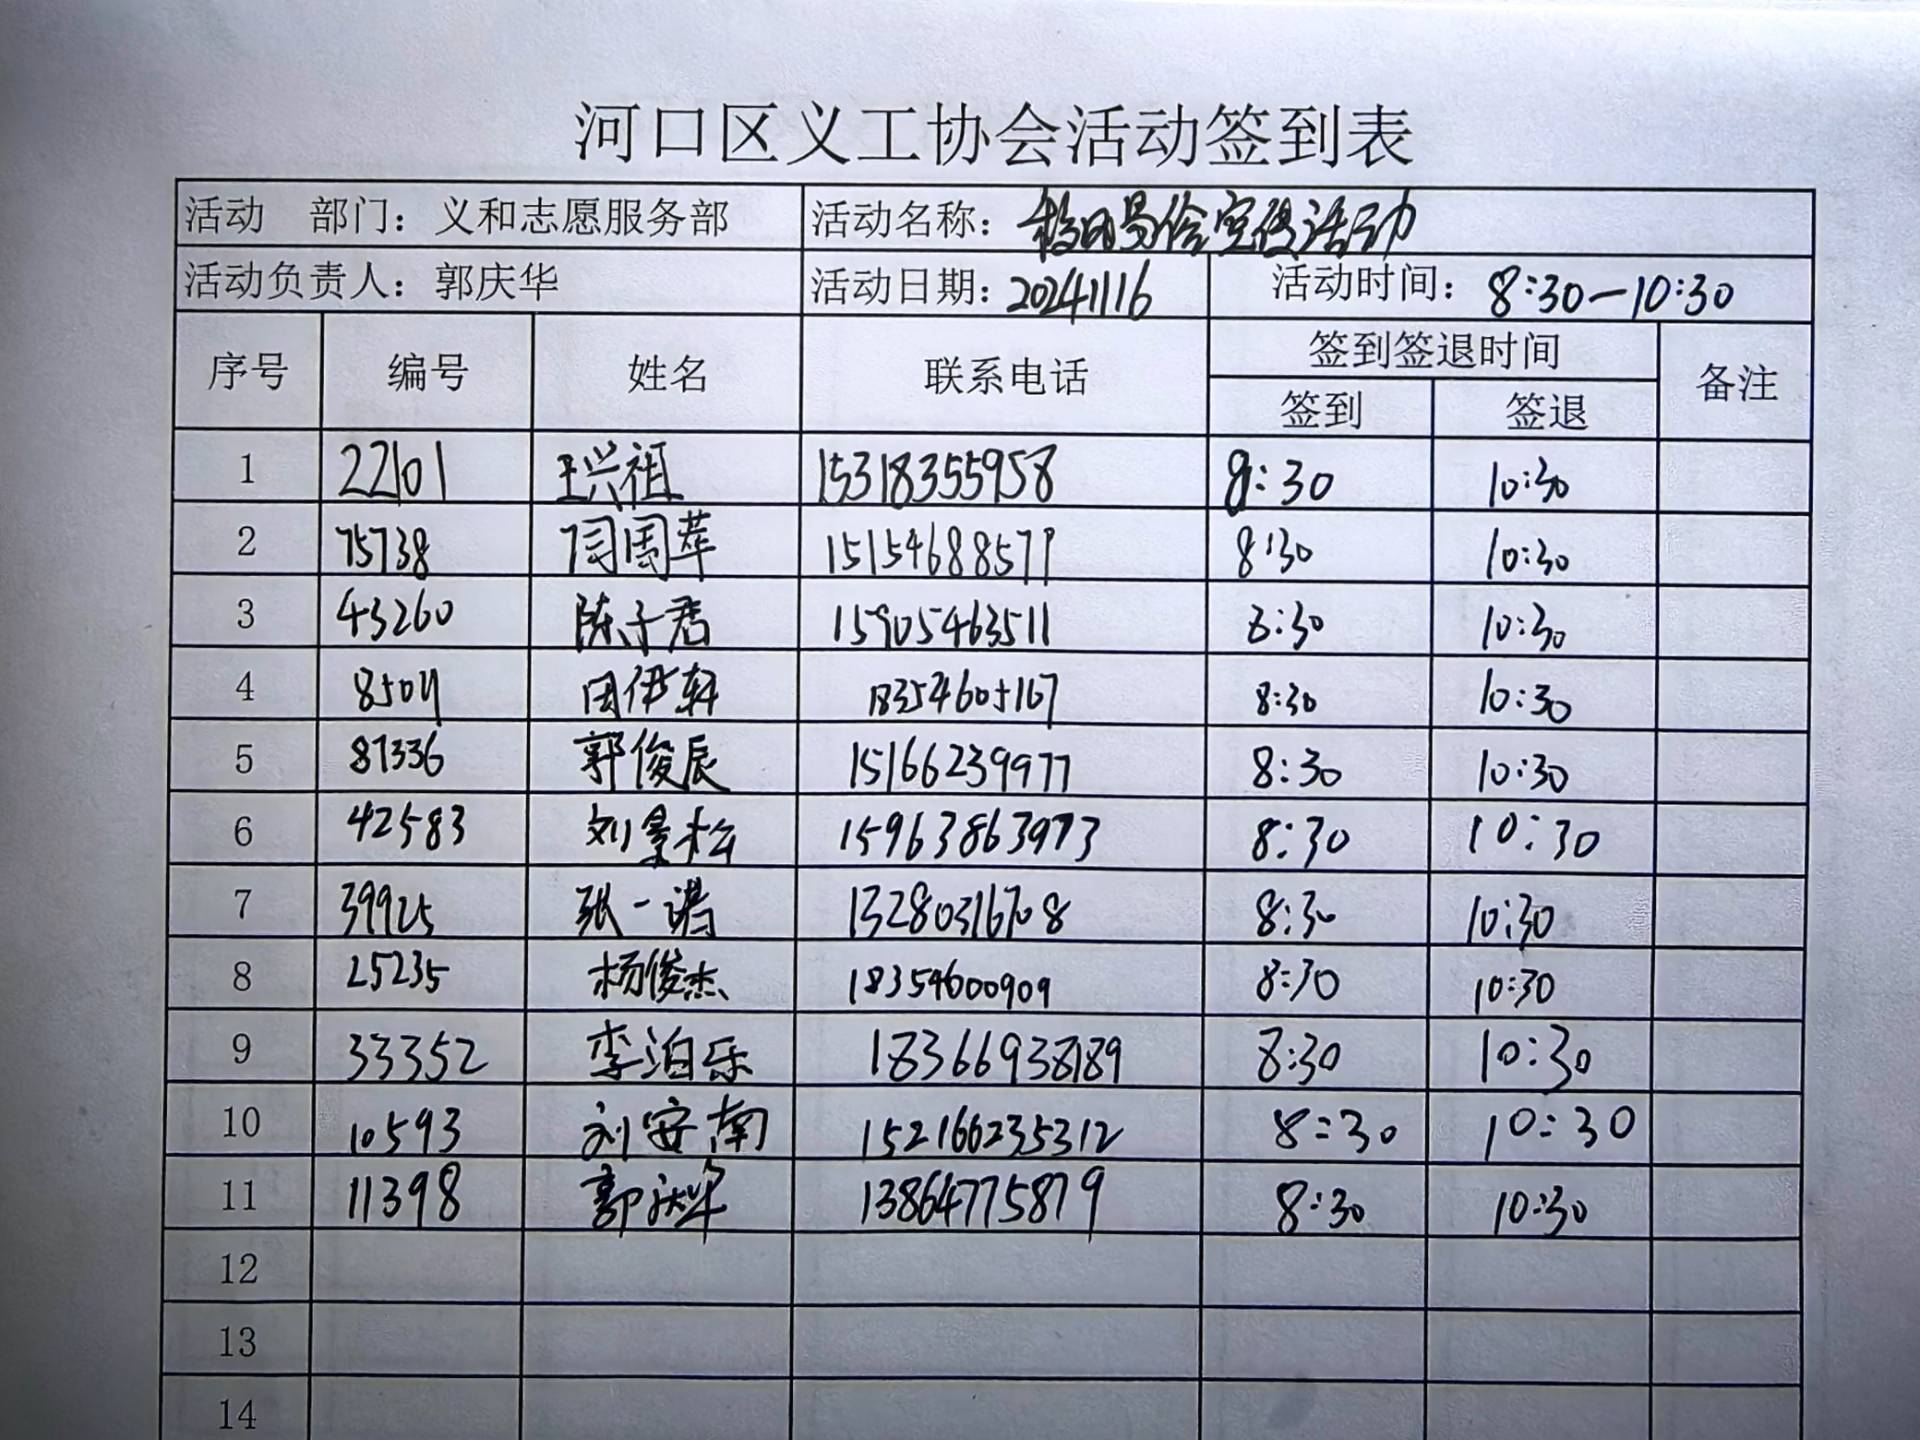 河口区义工协会活动签到表
活动 部门：义和志愿服务部 活动名称： 宣传活动
活动负责人：郭庆华 活动日期：20241116 活动时间：8:30—10:30
序号 编号 姓名 联系电话 签到签退时间 备注
签到 签退
1 22101 王兴祖 15318355958 8:30 10:30
2 75738 闫周苹 15154688577 8:30 10:30
3 43260 陈子君 15905463511 8:30 10:30
4 周伊轩 18354605167 8:30 10:30
5 87336 郭俊辰 15166239977 8:30 10:30
6 42583 刘景松 15963863973 8:30 10:30
7 39925 张一诺 13280316708 8:30 10:30
8 25235 杨俊杰 18354600909 8:30 10:30
9 33352 李泊乐 18366938189 8:30 10:30
10 10593 刘安南 152166235312 8:30 10:30
11 11398 郭庆华 13864775879 8:30 10:30
12
13
14